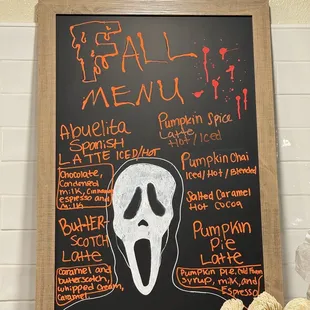 FALL
MENU
Abuelita
Spanish
LATTE ICED/HOT
Chocolate,
Condensed
milk, Cinnamon,
espresso and
milk
BUTTER-
SCOTCH
Latte
Caramel and
butterscotch,
whipped cream,
caramel
Pumpkin Spice
Latte
Hot/Iced
Pumpkin Chai
Iced/Hot/Blended
Salted Caramel
Hot Cocoa
Pumpkin
Pie
Latte
Pumpkin Pie, Cold Foam
Syrup, milk, and
Espresso